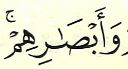 وَأَبْصَٰرِهِمْۚ